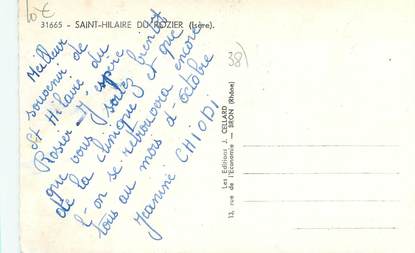 10€
31665 - SAINT-HILAIRE DU ROZIER (Isère).
38)
Meilleur
souvenir de
St Hilaire du
Rosier - J'espère
que vous sortez bientôt
de la clinique, et que
l'on se retrouvera encore
tous au mois d'octobre
Jeanine CHIODI
Les Editions J. CELLARD
13, rue de l'Economie — BRON (Rhône)